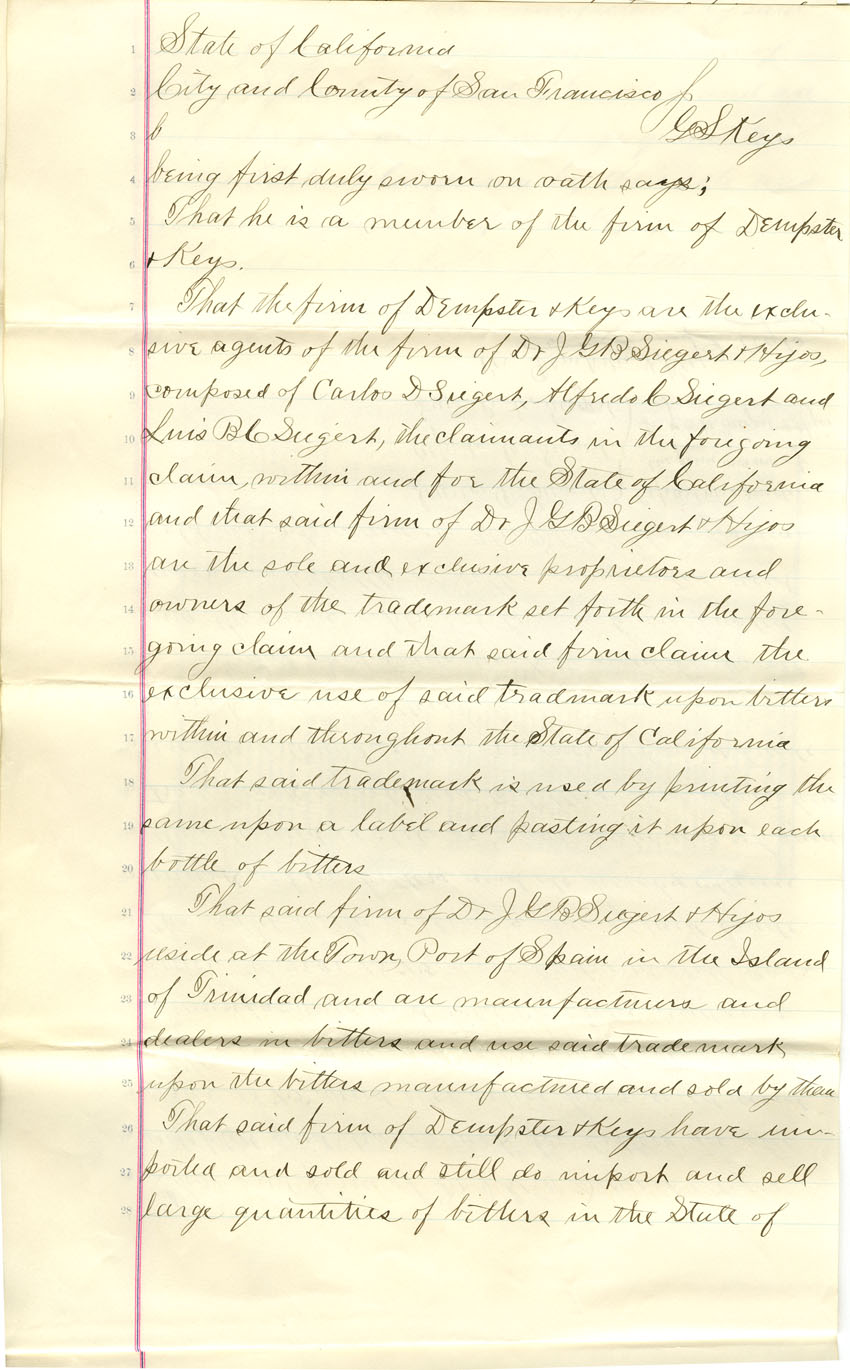 1 State of California
2 City and County of San Francisco }
3 G S Keys
4 being first duly sworn on oath says;
5 That he is a member of the firm of Dempster
6 & Keys.
7 That the firm of Dempster & Keys are the exclu-
8 sive agents of the firm of Dr J G B Siegert & Hijos,
9 composed of Carlos D Siegert, Alfredo C Siegert and
10 Luis B C Siegert, the claimants in the foregoing
11 claim, within and for the State of California
12 and that said firm of Dr J G B Siegert & Hijos
13 are the sole and exclusive proprietors and
14 owners of the trademark set forth in the fore-
15 going claim and that said firm claim the
16 exclusive use of said tradmark upon bitters
17 within and throughout the State of California
18 That said trademark is used by printing the
19 same upon a label and pasting it upon each
20 bottle of bitters
21 That said firm of Dr J G B Siegert & Hijos
22 reside at the Town, Port of Spain in the Island
23 of Trinidad and are manufacturers and
24 dealers in bitters and use said trademark
25 upon the bitters manufactured and sold by them
26 That said firm of Dempster & Keys have im-
27 ported and sold and still do import and sell
28 large quantities of bitters in the State of